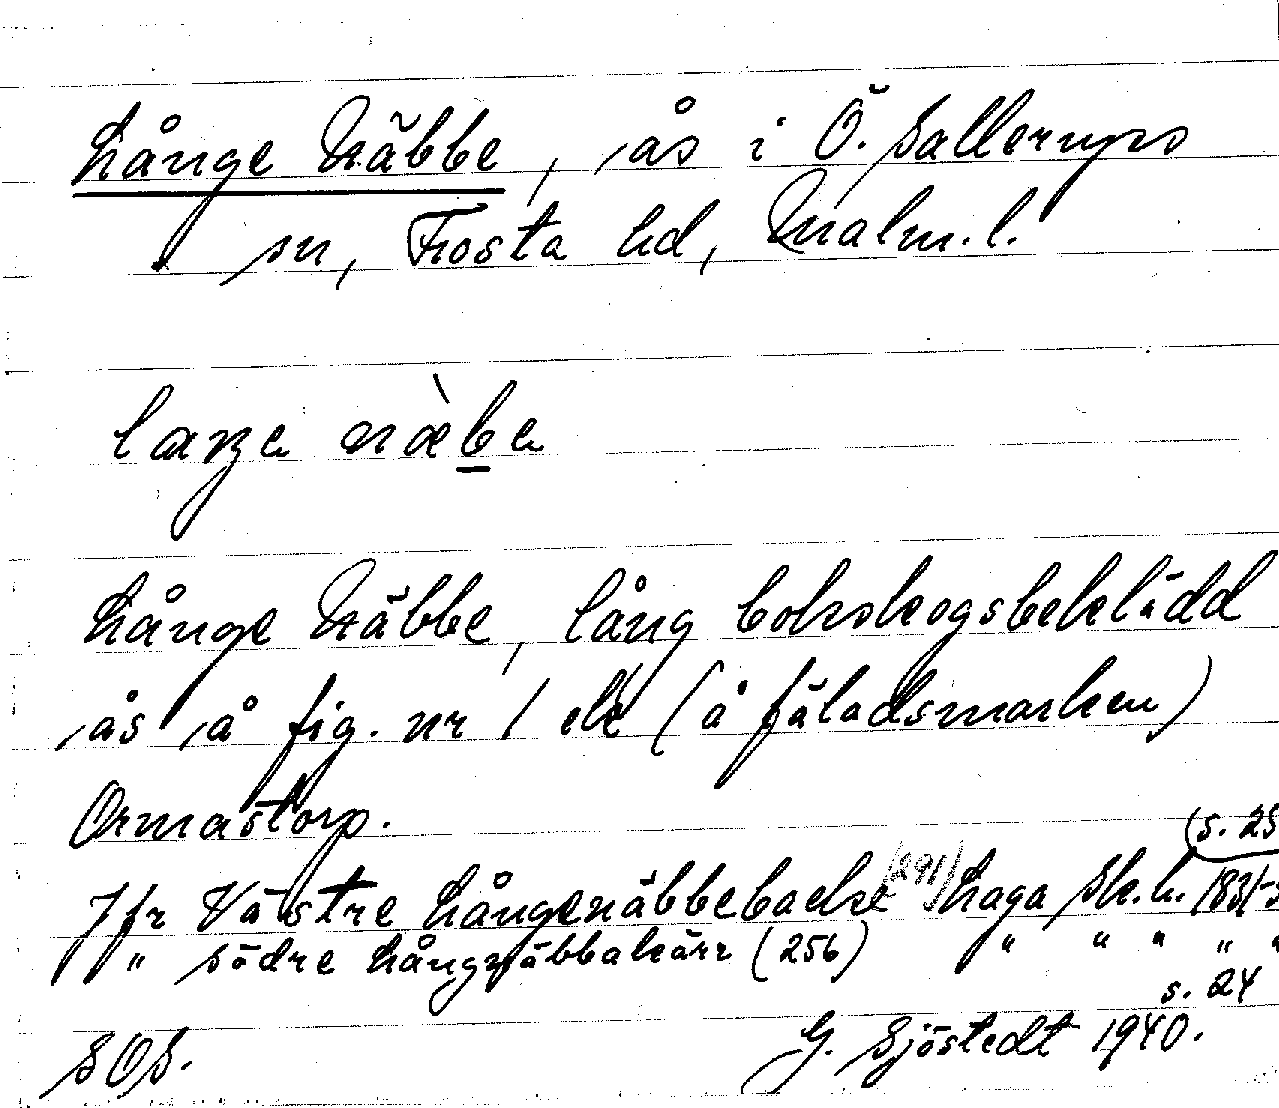 Långe Näbbe, ås i Ö. Sallerups
sn, Frosta hd, Malm. l.
laŋə næ̀bə
Långe Näbbe, lång bokskogsbeklädd
ås å fig. nr 1 (å fäladsmarken)
Ormastorp.
(s. 25
Jfr Västre Långenäbbebacke (291) Laga Sk.h. 1831-3
" Södre Långnäbbakärr (256) " " " " "
s. 24
SOS. G. Sjöstedt 1940.